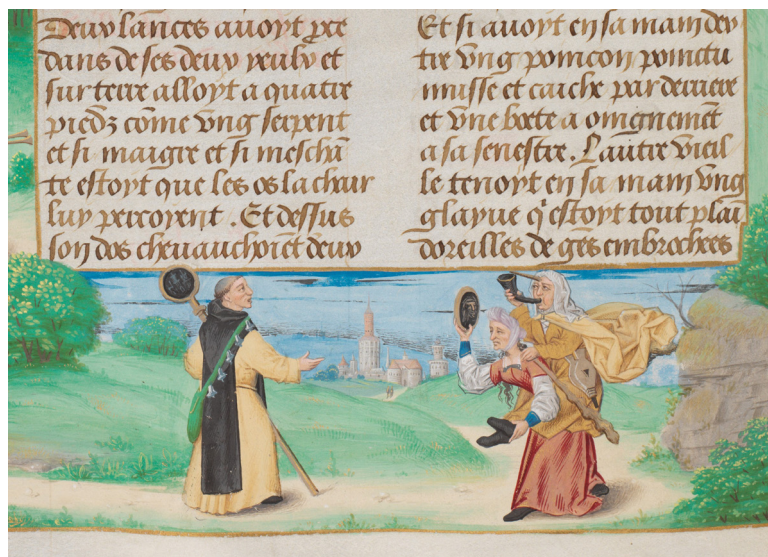 Deux lances avoyt pre
dans de ses deux yeulx et
sur terre alloyt a quatre
piedz cōme vng serpent
et si maigre et si meschā
te estoyt que les os la chair
luy percoyent . Et dessus
son dos chevauchoiēt deux
Et si avoyt en sa main dex
tre vng poincon poinctu
musse et caiche par derriere
et vne boete a oingnemēt
a sa senestre . L'autre vieil
le tenoyt en sa main vng
glayve q̄ estoyt tout plai
doreilles de gēs embrochees